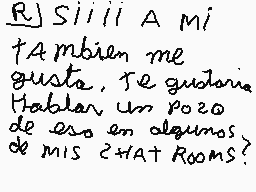 R) Siiii A Mi
tAmbien me
gusta, Te gustaria
Hablar un Pozo
de eso en algunos
de mis CHAt Rooms?